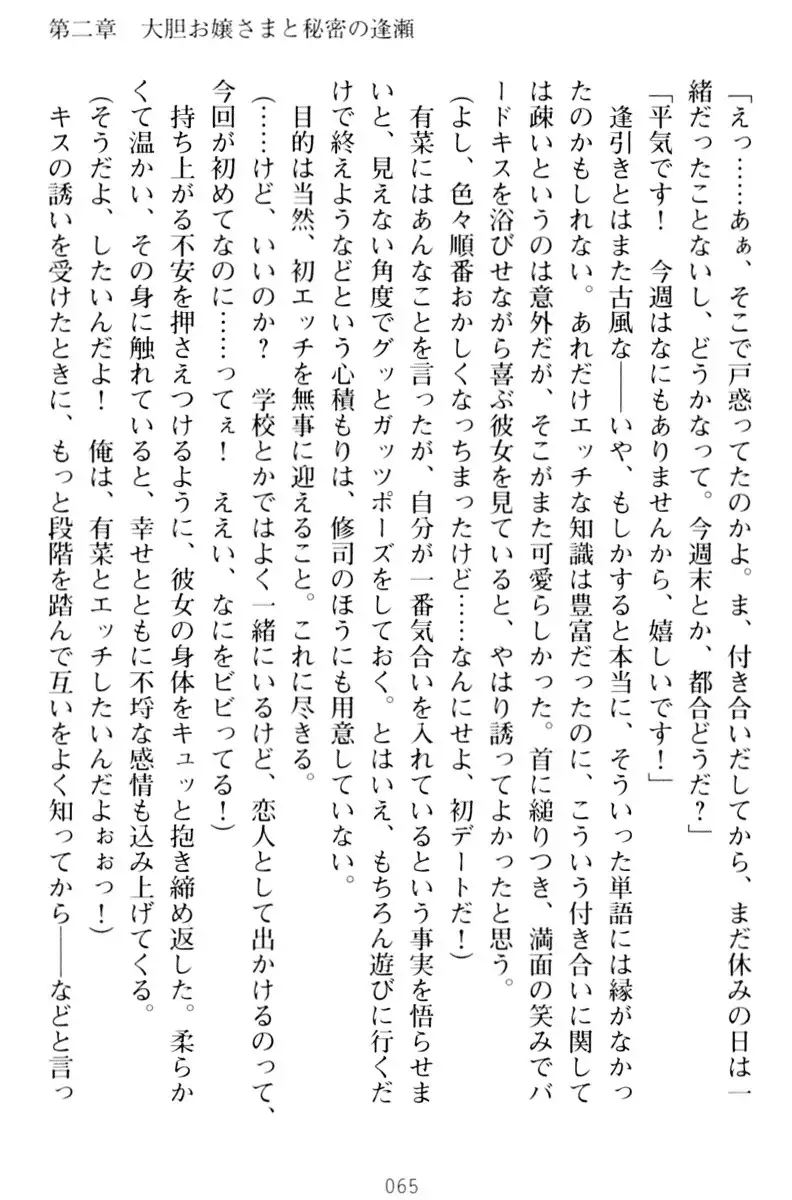 第二章　大胆お嬢さまと秘密の逢瀬
「えっ……あぁ、そこで戸惑ってたのかよ。ま、付き合いだしてから、まだ休みの日は一
緒だったことないし、どうかなって。今週末とか、都合どうだ？」
「平気です！　今週はなにもありませんから、嬉しいです！」
逢引きとはまた古風な――いや、もしかすると本当に、そういった単語には縁がなかっ
たのかもしれない。あれだけエッチな知識は豊富だったのに、こういう付き合いに関して
は疎いというのは意外だが、そこがまた可愛らしかった。首に縋りつき、満面の笑みでバ
ードキスを浴びせながら喜ぶ彼女を見ていると、やはり誘ってよかったと思う。
（よし、色々順番おかしくなっちまったけど……なんにせよ、初デートだ！）
有菜にはあんなことを言ったが、自分が一番気合いを入れているという事実を悟らせま
いと、見えない角度でグッとガッツポーズをしておく。とはいえ、もちろん遊びに行くだ
けで終えようなどという心積もりは、修司のほうにも用意していない。
目的は当然、初エッチを無事に迎えること。これに尽きる。
（……けど、いいのか？　学校とかではよく一緒にいるけど、恋人として出かけるのって、
今回が初めてなのに……ってぇ！　ええい、なにをビビってる！）
持ち上がる不安を押さえつけるように、彼女の身体をキュッと抱き締め返した。柔らか
くて温かい、その身に触れていると、幸せとともに不埒な感情も込み上げてくる。
（そうだよ、したいんだよ！　俺は、有菜とエッチしたいんだよぉぉっ！）
キスの誘いを受けたときに、もっと段階を踏んで互いをよく知ってから――などと言っ
065